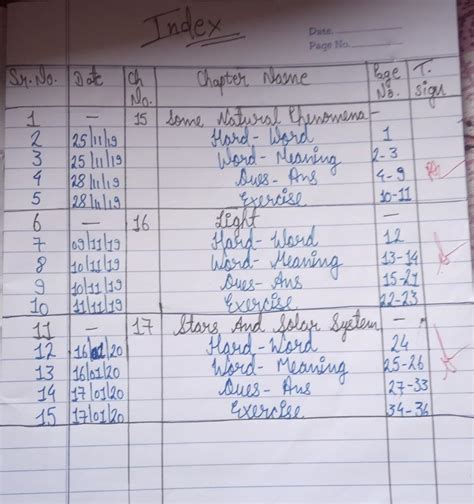 Index
Date
Page No.
Sr. No. Date Ch No. Chapter Name Page No. T. sign
1 — 15 Some Natural Phenomena —
2 25/11/19 Hard-Word 1
3 25/11/19 Word-Meaning 2-3
4 28/11/19 Ques-Ans 4-9
5 28/11/19 Exercise 10-11
6 — 16 Light —
7 09/11/19 Hard-Word 12
8 10/11/19 Word-Meaning 13-14
9 10/11/19 Ques-Ans 15-21
10 11/11/19 Exercise 22-23
11 — 17 Stars And Solar System —
12 16/01/20 Hard-Word 24
13 16/01/20 Word-Meaning 25-26
14 17/01/20 Ques-Ans 27-33
15 17/01/20 Exercise 34-36